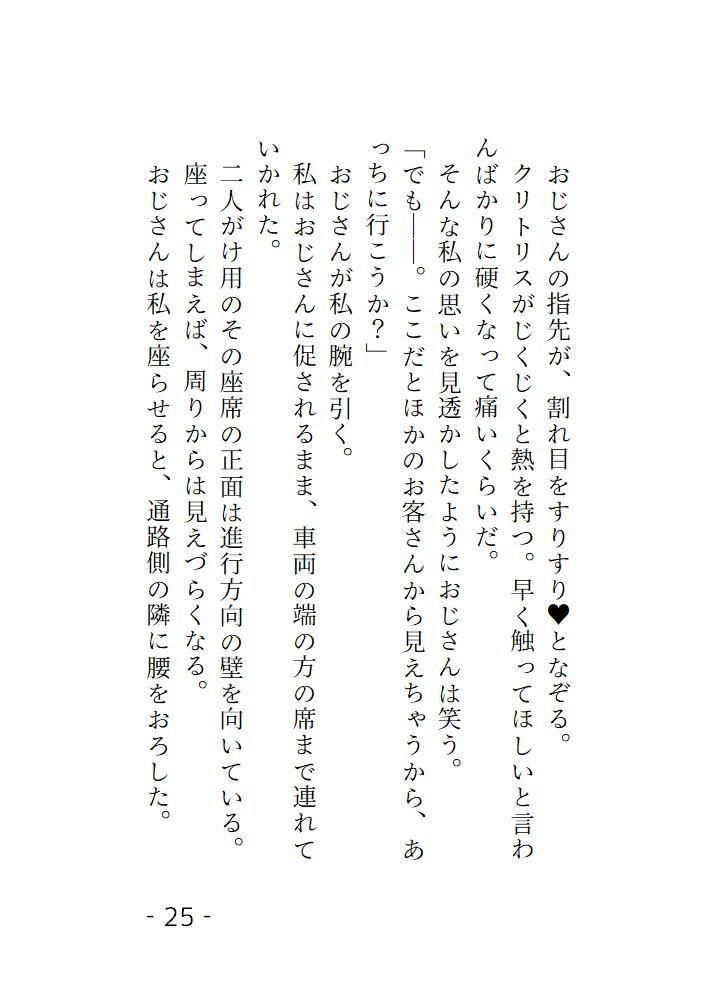 おじさんの指先が、割れ目をすりすり♥となぞる。
クリトリスがじくじくと熱を持つ。早く触ってほしいと言わ
んばかりに硬くなって痛いくらいだ。
そんな私の思いを見透かしたようにおじさんは笑う。
「でも――。ここだとほかのお客さんから見えちゃうから、あ
っちに行こうか？」
おじさんが私の腕を引く。
私はおじさんに促されるまま、車両の端の方の席まで連れて
いかれた。
二人がけ用のその座席の正面は進行方向の壁を向いている。
座ってしまえば、周りからは見えづらくなる。
おじさんは私を座らせると、通路側の隣に腰をおろした。
- 25 -